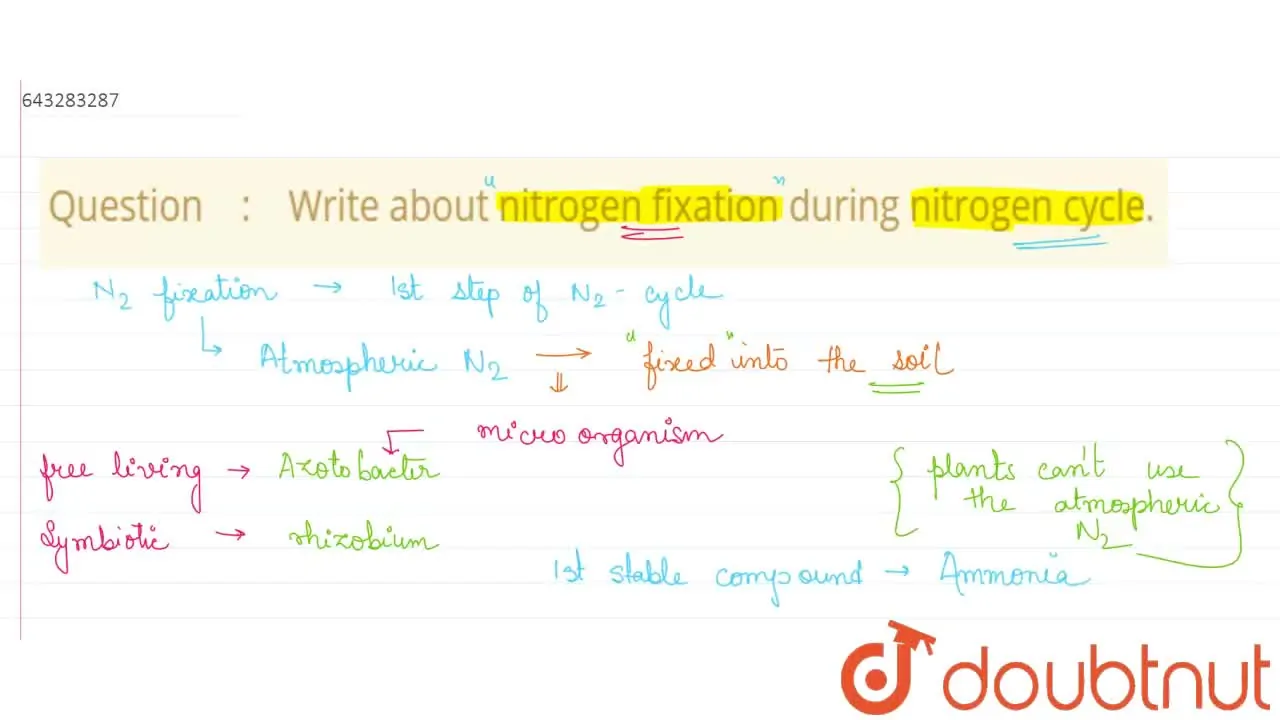 643283287
Question : Write about "nitrogen fixation" during nitrogen cycle.
N2 fixation → 1st step of N2-cycle
↳ Atmospheric N2 → "fixed" into the soil
⇓
micro organism
free living → Azotobacter
Symbiotic → rhizobium
{ plants can't use
the atmospheric
N2 }
1st stable compound → Ammonia
doubtnut